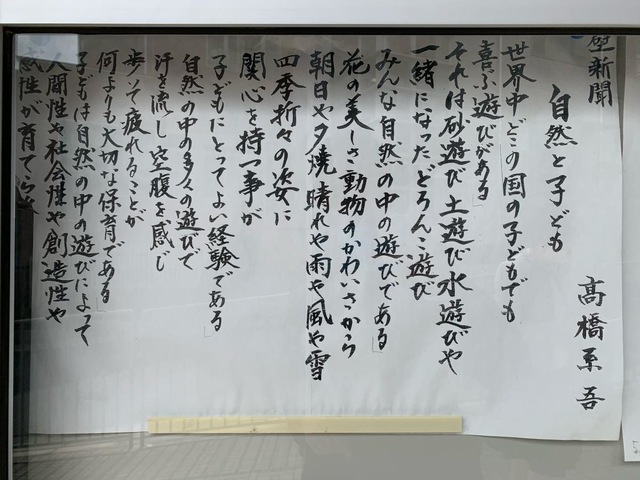 壁新聞
自然と子ども
高橋系吾
世界中どこの国の子どもでも
喜ぶ遊びがある」
それは砂遊び土遊び水遊びや
一緒になったどろんこ遊び
みんな自然の中の遊びである」
花の美しさ動物のかわいさから
朝日や夕焼晴れや雨や風や雪
四季折々の姿に
関心を持つ事が
子どもにとってよい経験である」
自然の中の多くの遊びで
汗を流し空腹を感じ
歩いて疲れることが
何よりも大切な保育である」
子どもは自然の中の遊びによって
人間性や社会性や創造性や
感性が育てら